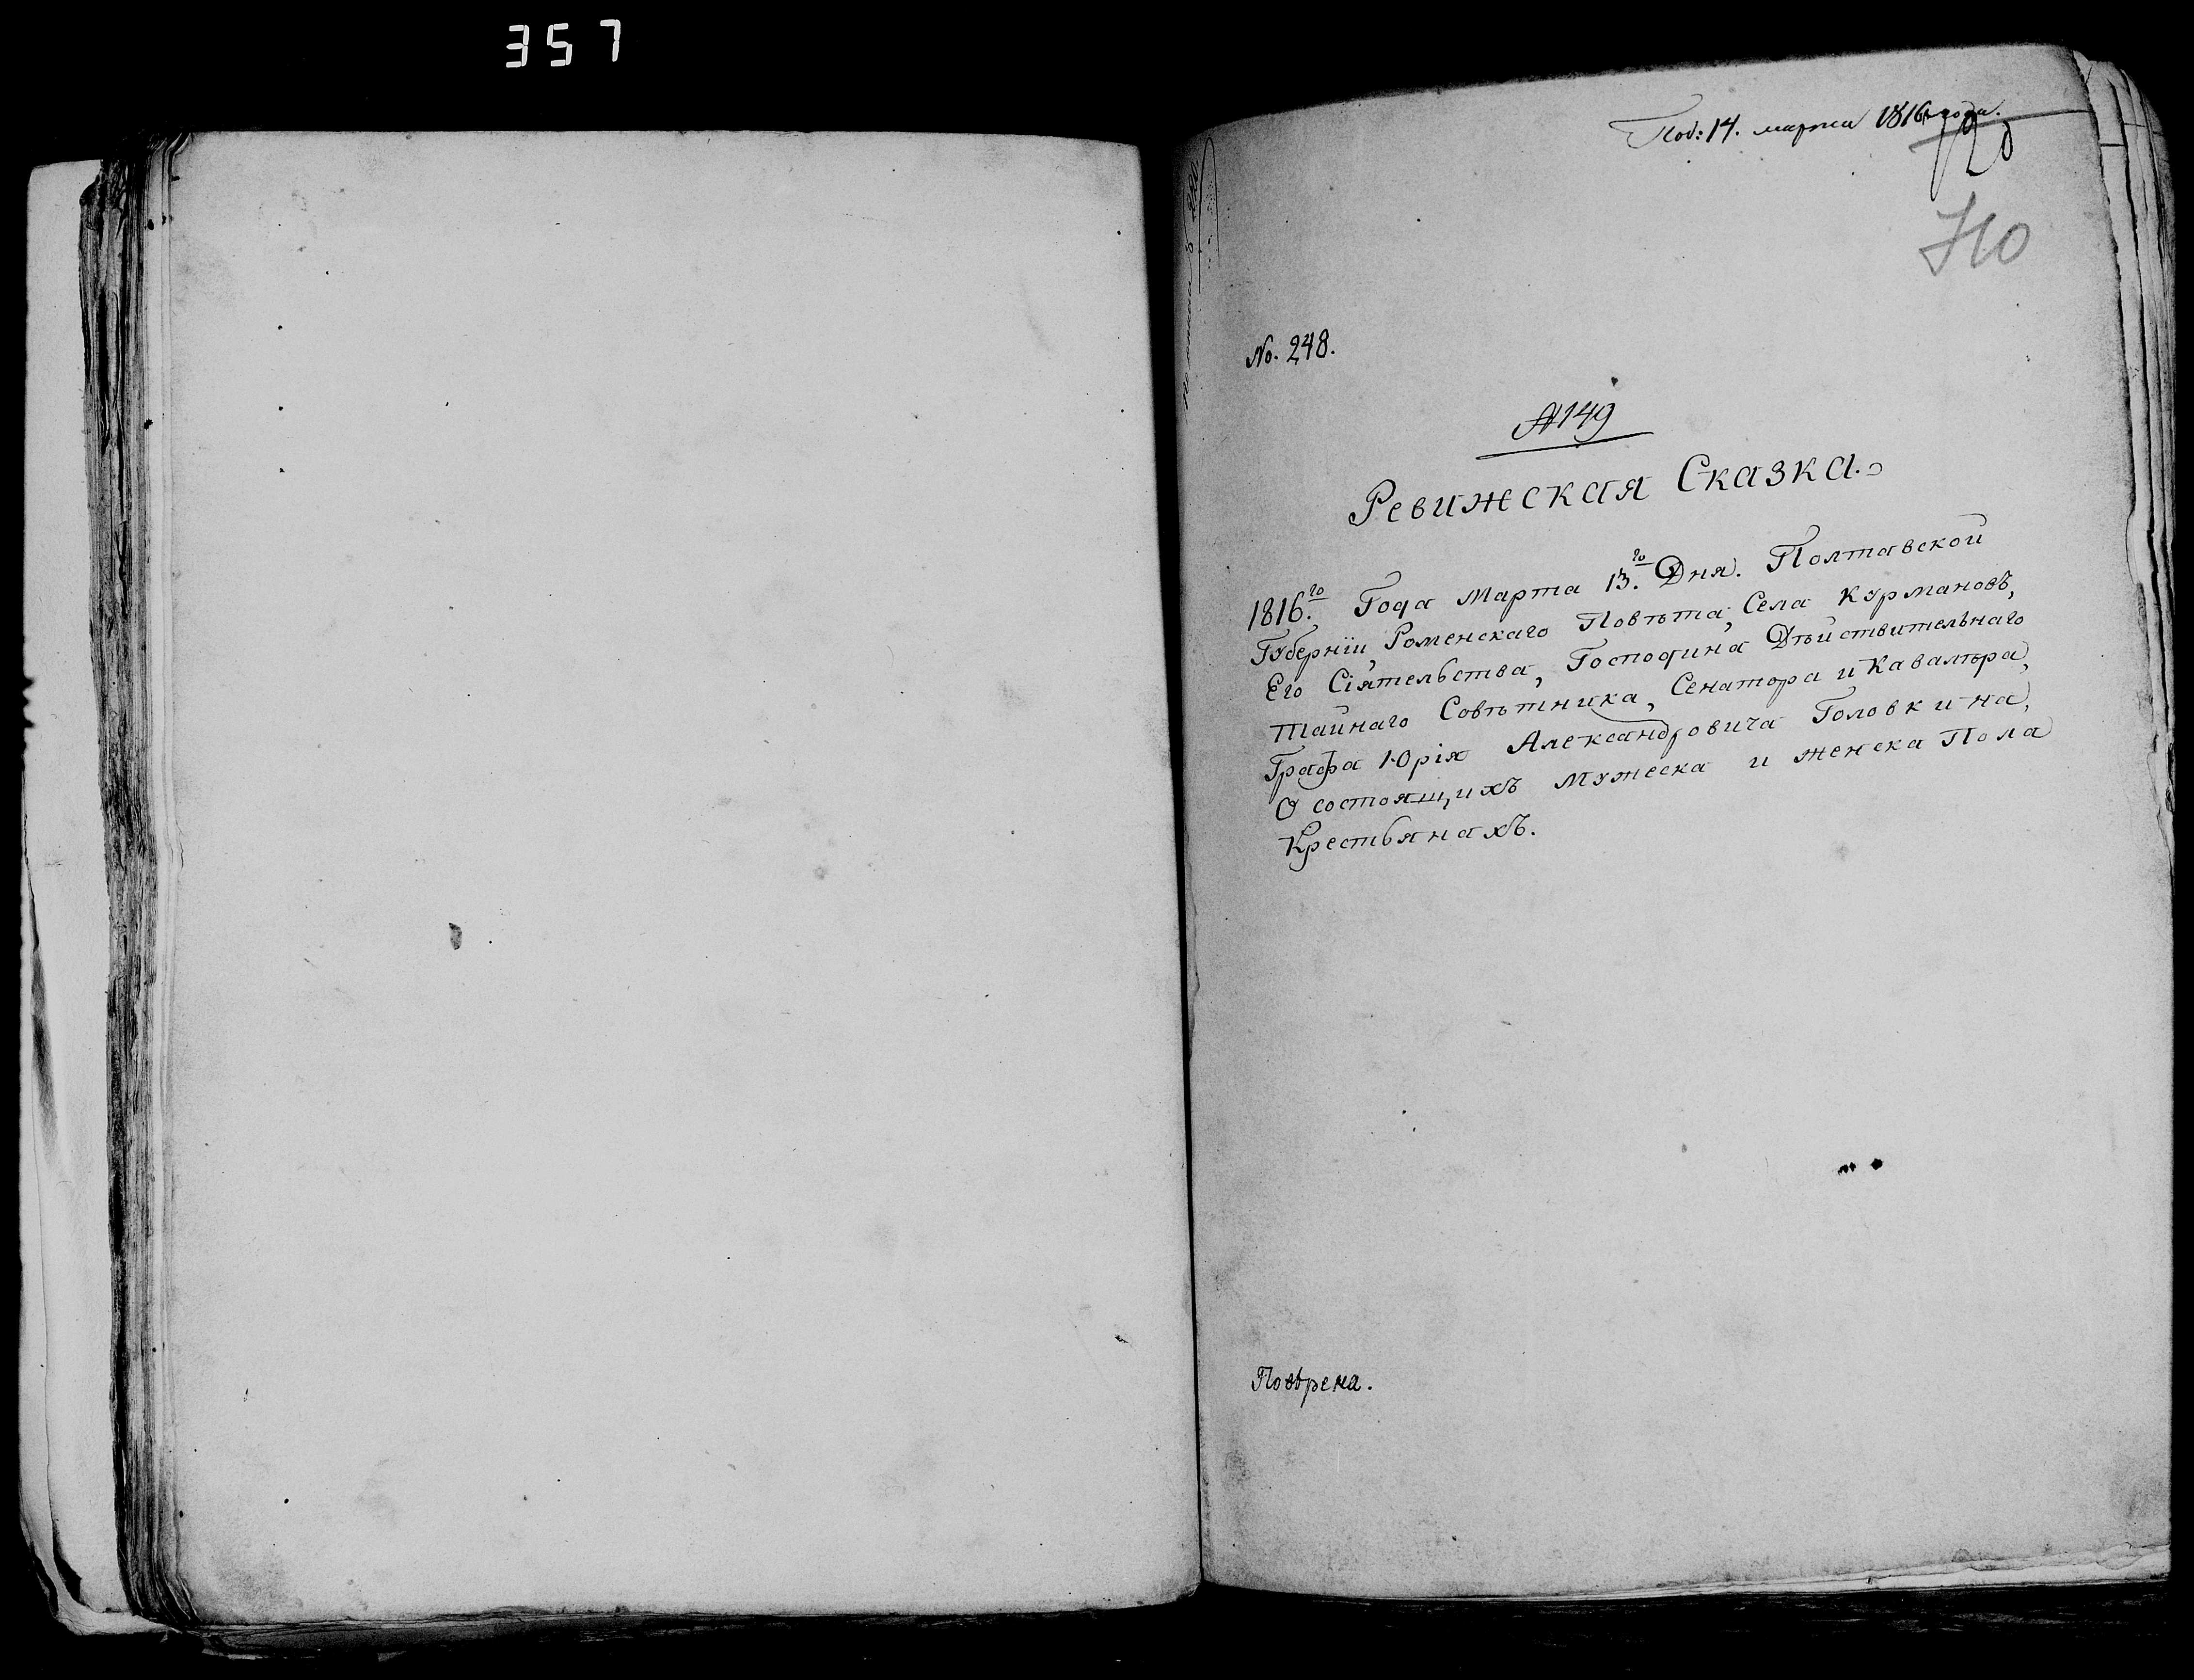 357
Под: 14. марта 1816 года.
720
710
No. 248.
№149
Ревижская Сказка.
1816.го Года Марта 13.го Дня. Полтавской
Губерніи, Роменскаго Повѣта, Села Курмановъ,
Его Сіятельства, Господина Дѣйствительнаго
Тайнаго Совѣтника, Сенатора и Кавалѣра,
Графа Юрія Александровича Головкина,
О состоящихъ Мужеска и женска Пола
Крестьянахъ.
Повѣрена.